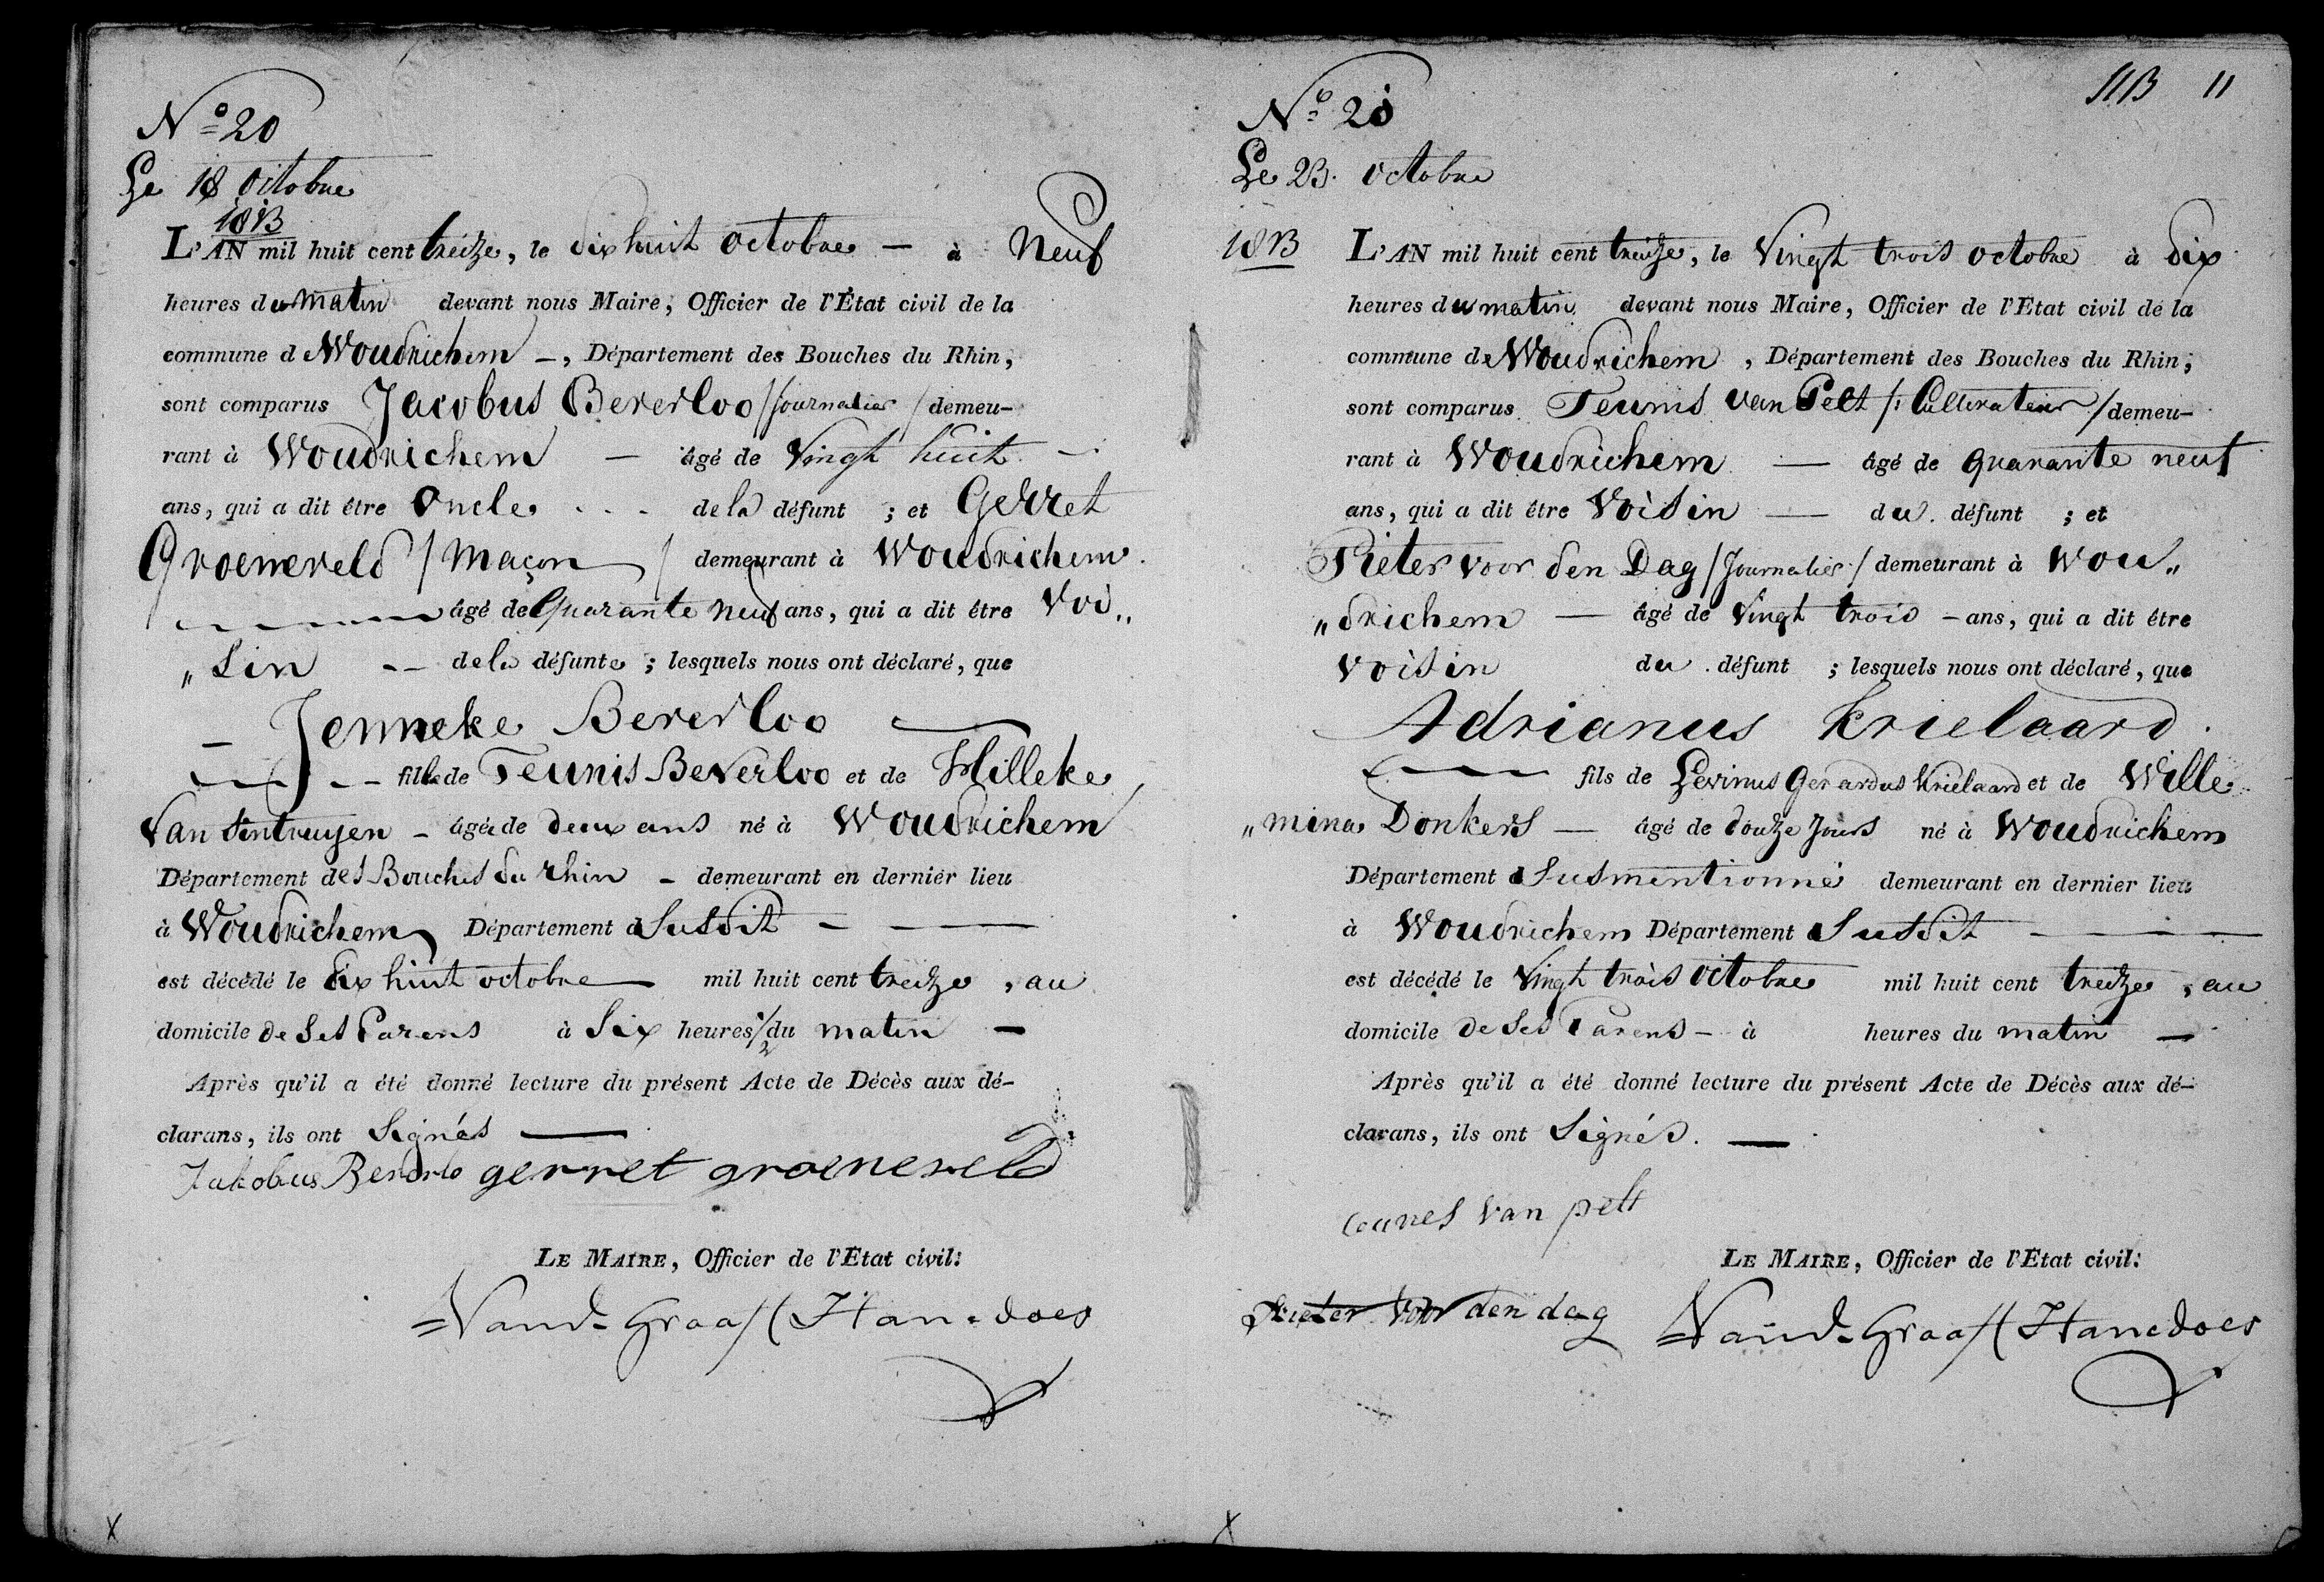 N.º 20
Le 18 octobre
1813
L'AN mil huit cent treitze, le dix huit octobre — à Neuf
heures du matin devant nous Maire, Officier de l'État civil de la
commune de Woudrichem —, Département des Bouches du Rhin,
sont comparus Jacobus Beverloo / Journalier / demeu-
rant à Woudrichem — âgé de Vingt huit —
ans, qui a dit être Oncle . . . de la défunt ; et Gerret
Groeneveld / Maçon / demeurant à Woudrichem.
âgé de Quarante neuf ans, qui a dit être Voi„
„sin -- de la défunte ; lesquels nous ont déclaré, que
— Jenneke Beverloo —
fille de Teunis Beverloo et de Hilleke
Van Sintruyen - âgée de deux ans né à Woudrichem
Département des Bouches du Rhin - demeurant en dernier lieu
à Woudrichem Département Susdit — —
est décédé le dix huit octobre — mil huit cent treitze, au
domicile de Ses Parens à Six heures 1/2 du matin —
Après qu'il a été donné lecture du présent Acte de Décès aux dé-
clarans, ils ont Signés —
Jakobus gerret groeneveld
LE MAIRE, Officier de l'Etat civil:
Vand. Graaff Hanedoes
X
11B 11
N.º 20
Le 23. octobre
1813 L'AN mil huit cent treitze, le Vingt trois octobre à dix
heures du matin devant nous Maire, Officier de l'Etat civil de la
commune de Woudrichem, Département des Bouches du Rhin;
sont comparus Teunis van Pelt /: Cultivateur / demeu-
rant à Woudrichem — âgé de quarante neuf
ans, qui a dit être Voisin — du défunt ; et
Pieter voor den Dag / Journalier / demeurant à Wou„
„drichem — âgé de Vingt trois - ans, qui a dit être
Voisin du défunt ; lesquels nous ont déclaré, que
Adrianus Krielaard.
fils de Levinus Gerardus Krielaard et de Wille
„mina Donkers — âgé de doutze Jours né à Woudrichem
Département Susmentionné demeurant en dernier lieu
à Woudrichem Département Susdit — — —
est décédé le Vingt trois octobre mil huit cent treitze, au
domicile de Ses Parens - à heures du matin —
Après qu'il a été donné lecture du présent Acte de Décès aux dé-
clarans, ils ont Signés. —
teunes van pelt
LE MAIRE, Officier de l'Etat civil:
Pieter voor den dag Vand. Graaff Hanedoes
X